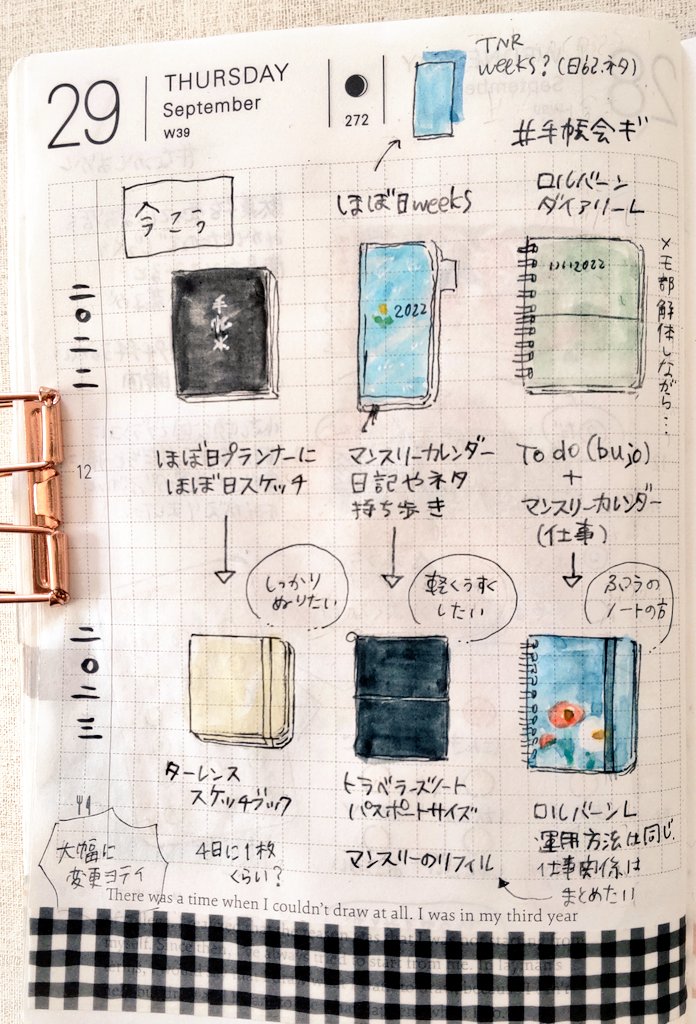 29
THURSDAY
September
W39
272
TNR
weeks?(日記、ネタ)
#手帳会ギ
今こう
ほぼ日weeks
ロルバーン
ダイアリーL
二〇二二
手帖
2022
2022
×モ部解体しながら…
12
ほぼ日プランナーに
ほぼ日スケッチ
マンスリーカレンダー
日記やネタ
持ち歩き
To do(bujo)
+
マンスリーカレンダー
(仕事)
しっかり
ぬりたい
軽くうすく
したい
ふつうの
ノートの方
二〇二三
ターレンス
スケッチブック
トラベラーズノート
パスポートサイズ
ロルバーンL
運用方法は同じ
仕事関係は
まとめたい
大幅に
変更ヨテイ
4日に1枚
くらい?
マンスリーのリフィル
There was a time when I couldn't draw at all. I was in my third year